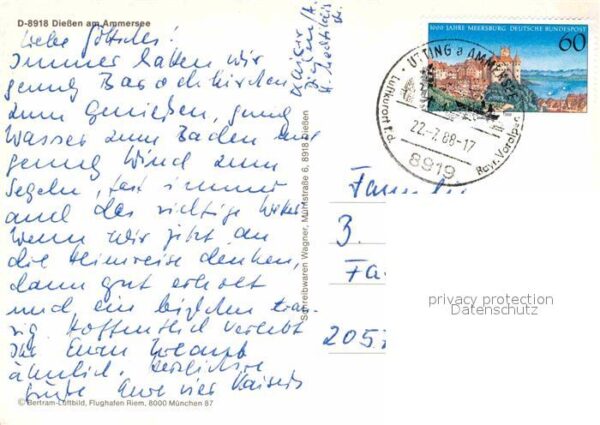 D-8918 Dießen am Ammersee
Liebe
Immer hatten wir
genug Barockkirchen
zum Genießen, genug
Wasser zum Baden und
genug Wind zum
Segeln, fast immer
auch das richtige Wetter.
Wenn wir jetzt an
die Heimreise denken,
dann gut erholt
und ein bißchen trau-
rig. Hoffentlich verlebt
Ihr Euren Urlaub
ähnlich. Herzliche
Grüße Eure vier Kaisers
© Bertram-Luftbild, Flughafen Riem, 8000 München 87
Schreibwaren Wagner, Mühlstraße 6, 8918 Dießen
1000 JAHRE MEERSBURG DEUTSCHE BUNDESPOST
60
UTTING a AMM
22.-7.88-17
8919
Luftkurort
Bayr. Voralpen
Fam
3.
Fa
205
privacy protection
Datenschutz